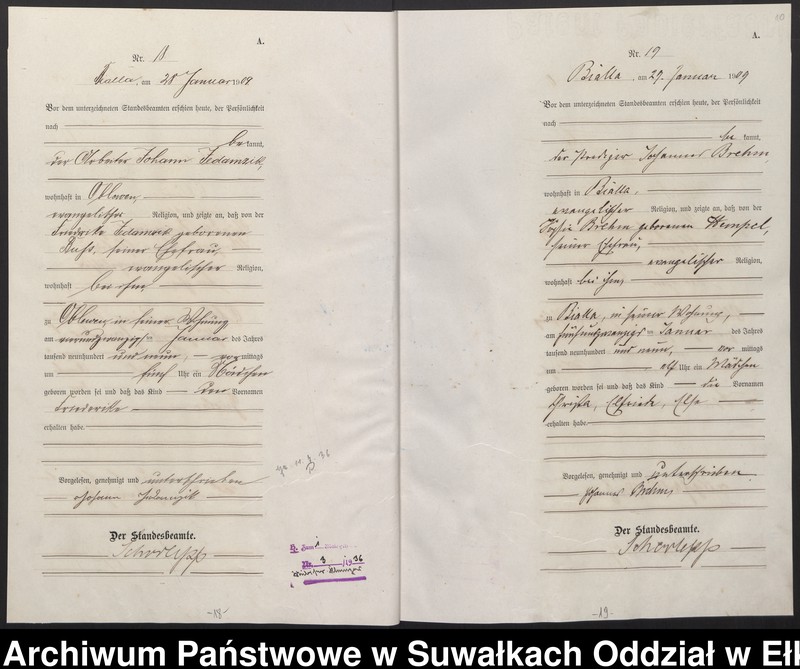 A.
Nr. 18
Bialla, am 28 Januar 1909
Vor dem unterzeichneten Standesbeamten erschien heute, der Persönlichkeit
nach
be kannt,
der Arbeiter Johann Sedamzik,
wohnhaft in Oblewen,
evangelischer Religion, und zeigte an, daß von der
Sedamzik geborenen
seiner Ehefrau,
evangelischer Religion,
wohnhaft bei ihm,
zu Oblewen in seiner Wohnung
am Januar des Jahres
tausend neunhundert und neun, vor mittags
um fünf Uhr ein Mädchen
geboren worden sei und daß das Kind den Vornamen
Friederike
erhalten habe.
Vorgelesen, genehmigt und unterschrieben
Johann
Der Standesbeamte.
Schorlepp
-18-
A.
Nr. 19
Bialla, am 29. Januar 1909
Vor dem unterzeichneten Standesbeamten erschien heute, der Persönlichkeit
nach
be kannt,
der Prediger Johannes Brehm,
wohnhaft in Bialla,
evangelischer Religion, und zeigte an, daß von der
Brehm geborenen Hempel,
seiner Ehefrau,
evangelischer Religion,
wohnhaft bei ihm,
zu Bialla, in seiner Wohnung,
am fünfundzwanzigsten Januar des Jahres
tausend neunhundert und neun, vor mittags
um elf Uhr ein Mädchen
geboren worden sei und daß das Kind die Vornamen
Christa, Elfriede, Else
erhalten habe.
Vorgelesen, genehmigt und unterschrieben
Johannes Brehm
Der Standesbeamte.
Schorlepp
-19-
Archiwum Państwowe w Suwałkach Oddział w Eł